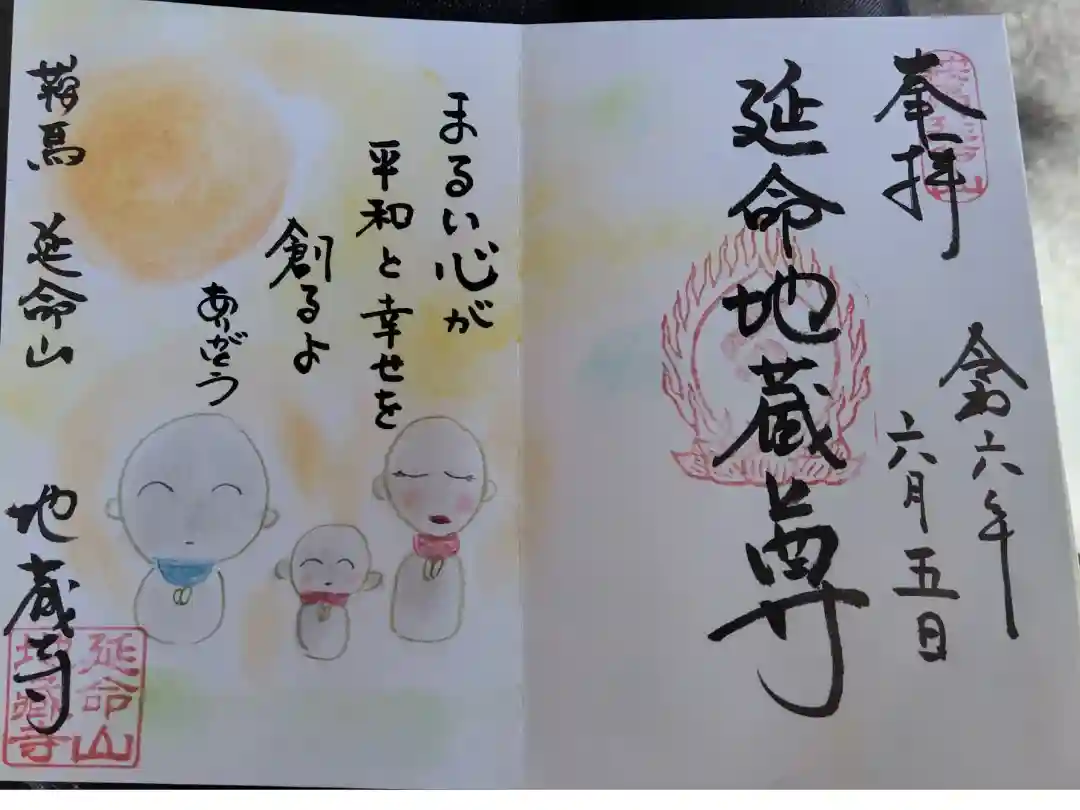 奉拝
令和六年
六月五日
延命地蔵尊
まるい心が
平和と幸せを
創るよ
ありがとう
鞍馬 延命山 地蔵寺
延命山
地蔵寺